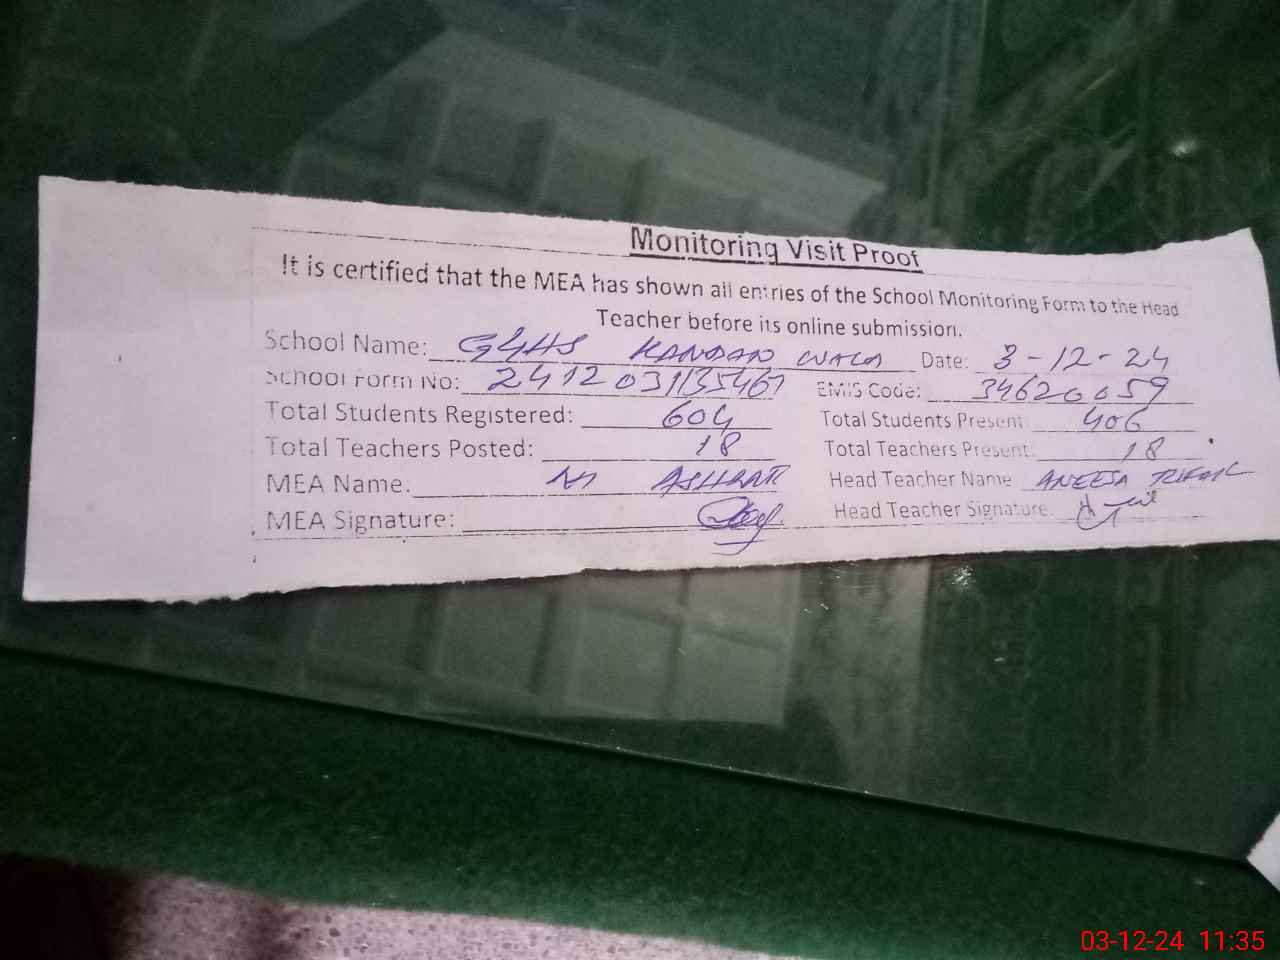 Monitoring Visit Proof
It is certified that the MEA has shown all entries of the School Monitoring Form to the Head
Teacher before its online submission.
School Name: GGHS KANDAN WALA Date: 3-12-24
School Form No: 2412031135461 EMIS Code: 34620059
Total Students Registered: 604 Total Students Present: 406
Total Teachers Posted: 18 Total Teachers Present: 18
MEA Name: M ASHRAF Head Teacher Name ANEESA
MEA Signature: Head Teacher Signature:
03-12-24 11:35